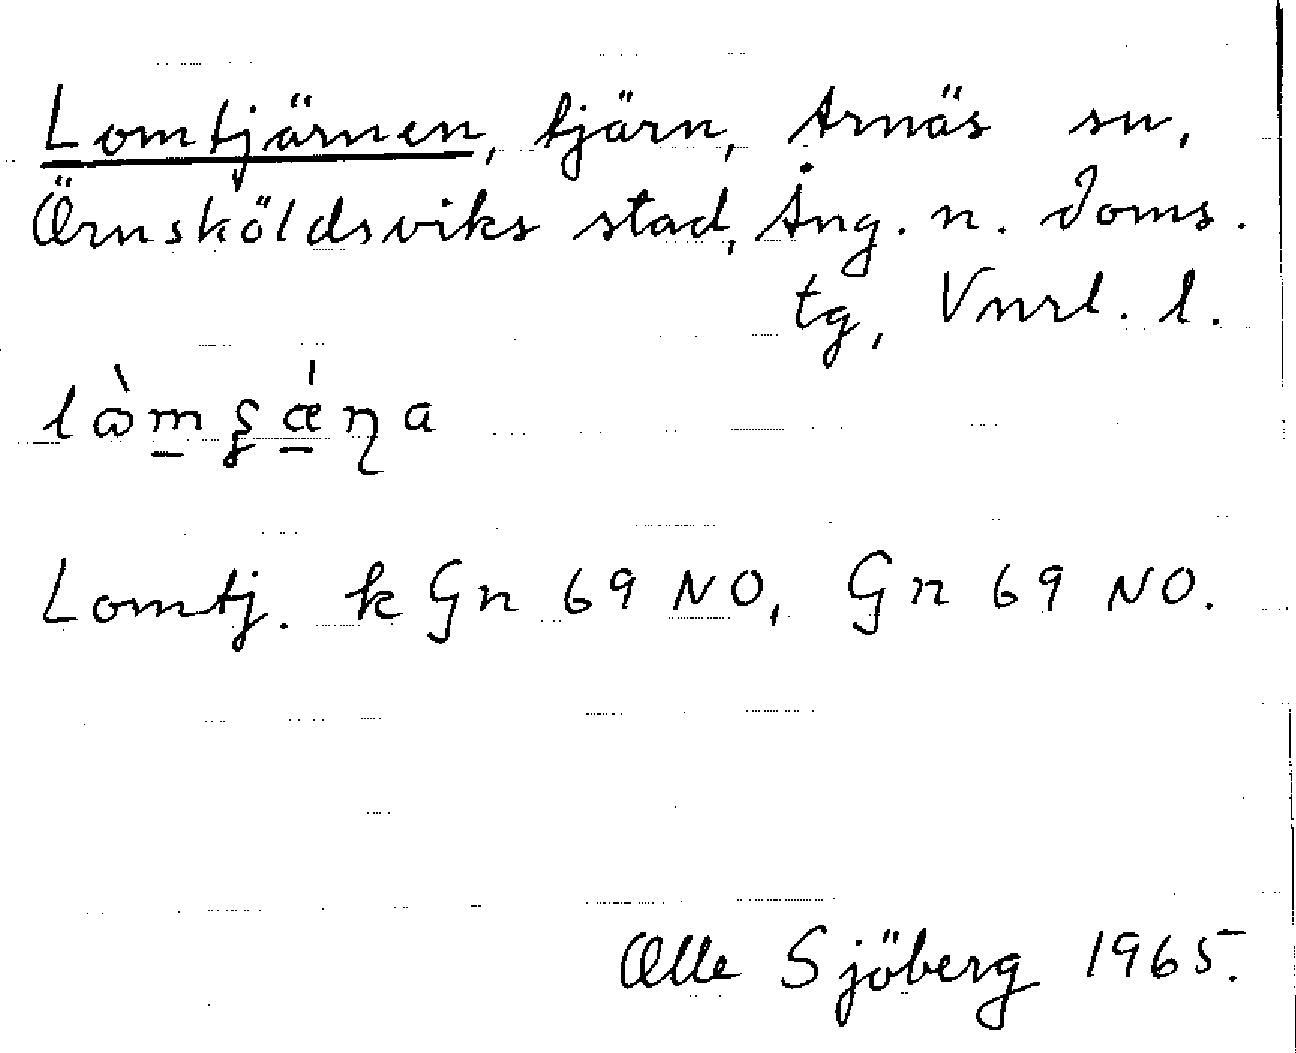 Lomtjärnen, tjärn, Arnäs sn,
Örnsköldsviks stad, Ång. n. doms.
tg, Vnrl. l.
lὼm̲ʂǽ̲ɳa
Lomtj. k Gn 69 NO, Gn 69 NO.
Olle Sjöberg 1965.